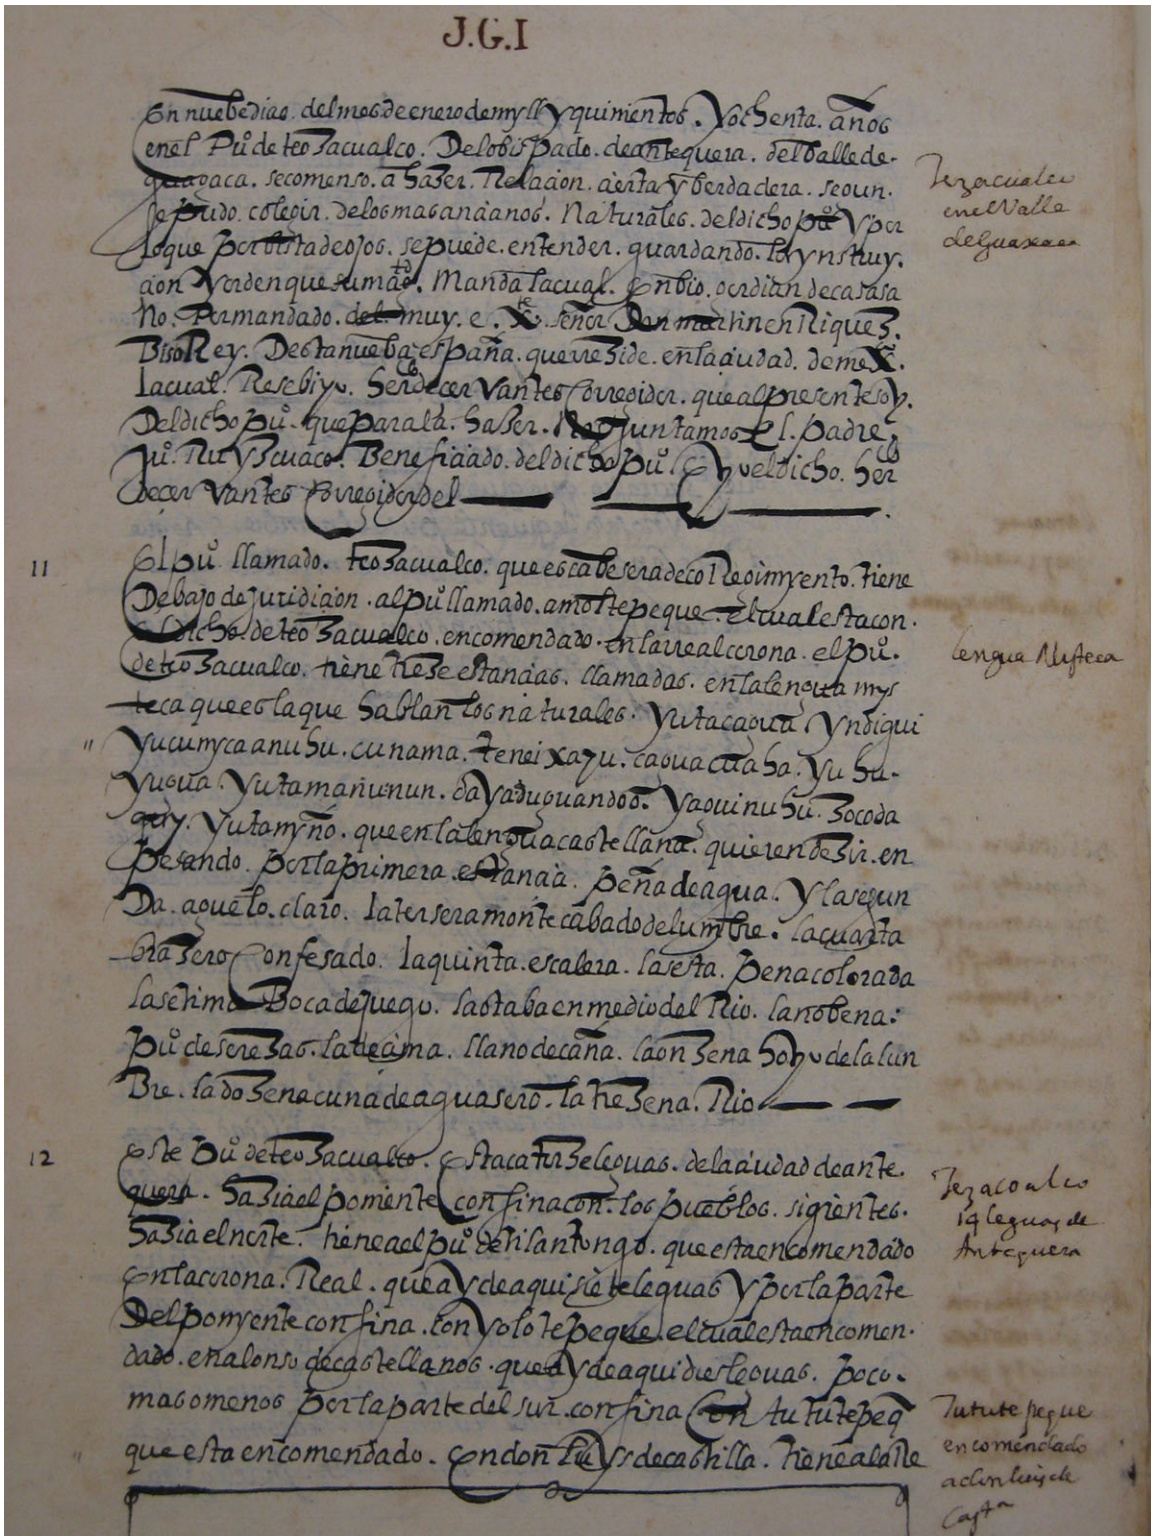 J.G.I
En nuebe dias. del mes de enero de myll y quinientos. Y ochenta. años
en el Pu° de teo3acualco. Del obispado. de antequera. del balle de.
guaxaca. se comenso. a haser. Relacion. cierta y berdadera. segun.
se pudo. colegir. de los mas ancianos. Naturales. del dicho pu° y por
lo que por bista de ojos. se puede. entender. guardando. la ynstruy.
cion y orden que su magd. Manda la cual. Enbio.
No. Por mandado. del muy. e. señor Don martin enRique3.
Biso Rey. Desta nueba españa. que rre3ide. en la ciudad. de mexco.
la cual. Resebi yo. herdo de cervantes Corregidor. que al presente soy.
Del dicho pu°. que para la. haser. Nos juntamos El. padre
Ju°. Ruys. Beneficiado. del dicho pu° E yo el dicho. herdo
de cervantes Corregidor del
11
El pu° llamado. teo3acualco. que es cabesera de coRegimyento. tiene
Debajo de juridicion. al pu° llamado. amoltepeque. el cual esta con.
El dicho. de teo3acualco. encomendado. en la rreal corona. el pu°.
de teo3acualco. tiene trese estancias. llamadas. en la lengua mys
teca que es la que hablan los naturales. yutacagua yndigui
yucunycaanuhu. cunama. caguacuaha. yuhu.
yugua. yutamañunun. yaguinuhu. 3ocoda
yutamyño. que en la lengua castellana. quieren de3ir. en
pesando. por la primera. estancia. peña de agua. Y la segun
Da. aguelo. claro. la tersera monte cabado de lumbre. la cuarta
bra3ero Confesado. la quinta. escalera. la sesta. pena colorada
la setima Boca de juego. la otaba en medio del Rio. la nobena:
pu° de sere3as. la decima. llano de caña. la on3ena hoyo de la lun
Bre. la do3ena cuna de aguasero. la tre3ena. Rio
12
Este pu° de teo3acualco. Esta leguas. de la ciudad de ante.
quera. ha3ia el poniente confina con. los pueblos. sigientes.
ha3ia el norte. tiene a el pu° de tilantongo. que esta encomendado
En la corona. Real. que ay de aqui siete leguas y por la parte
Del ponyente confina. con yolotepeque. el cual esta encomen.
dado. en alonso de castellanos. que ay de aqui dies leguas. poco.
mas o menos por la parte del sur. confina Con tututepeq
que esta encomendado. En don Luys de castilla. tiene a la Re
Tezacualco
en el Valle
de Guaxaca
lengua Misteca
Tezacoalco
14 leguas de
Antequera
Tututepeque
encomendado
a don luis de
Casta